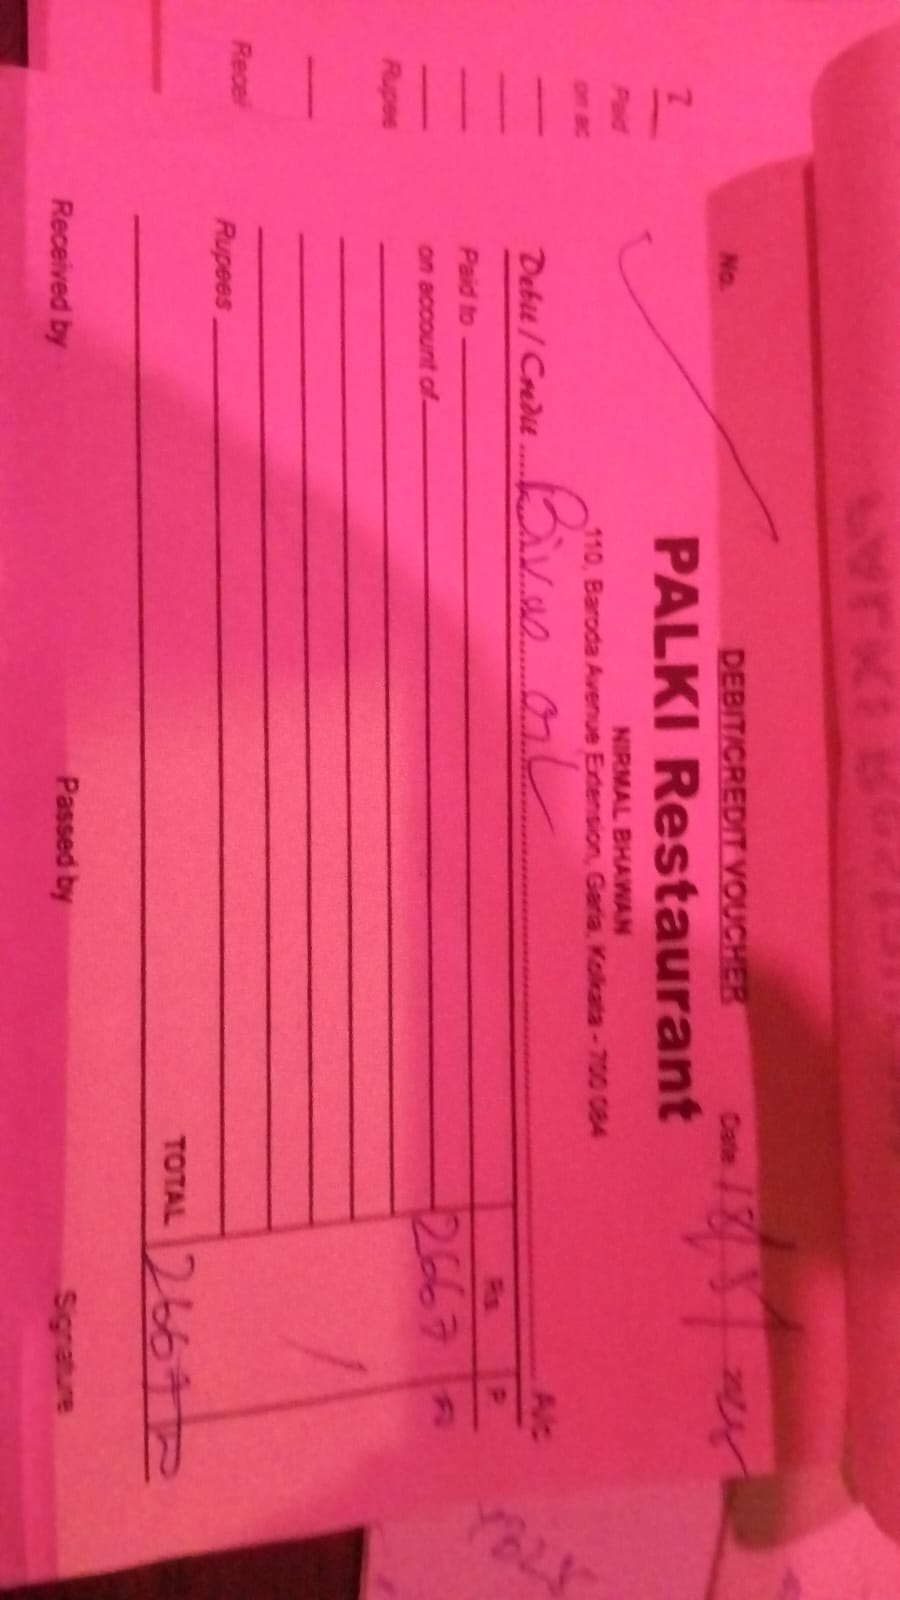 DEBIT/CREDIT VOUCHER
No.
Date 18/8/
PALKI Restaurant
NIRMAL BHAWAN
110, Baroda Avenue Extension, Garia, Kolkata - 700 084
Debit / Credit ........................ A/c
Paid to
Rs. P.
on account of
2667
Rupees
TOTAL 2667
Received by Passed by Signature
7
Paid
on ac
Rupees
Recei